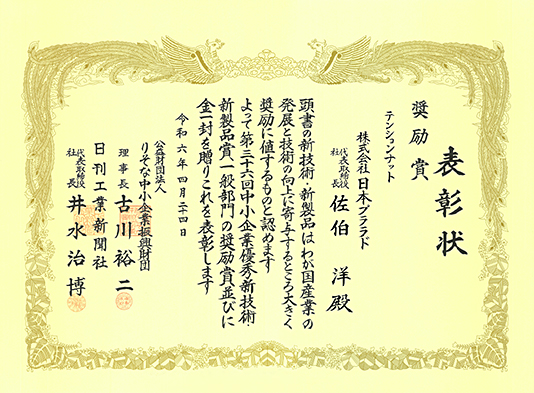 表彰状
奨励賞
テンションナット
株式会社日本プララド
代表取締役
社長
佐伯 洋 殿
頭書の新技術・新製品はわが国産業の
発展と技術の向上に寄与するところ大きく
奨励に値するものと認めます
よって第三十六回中小企業優秀新技術・
新製品賞一般部門の奨励賞並びに
金一封を贈りこれを表彰します
令和六年四月二十四日
公益財団法人
りそな中小企業振興財団
理事長 古川裕二
日刊工業新聞社
代表取締役
社長
井水治博